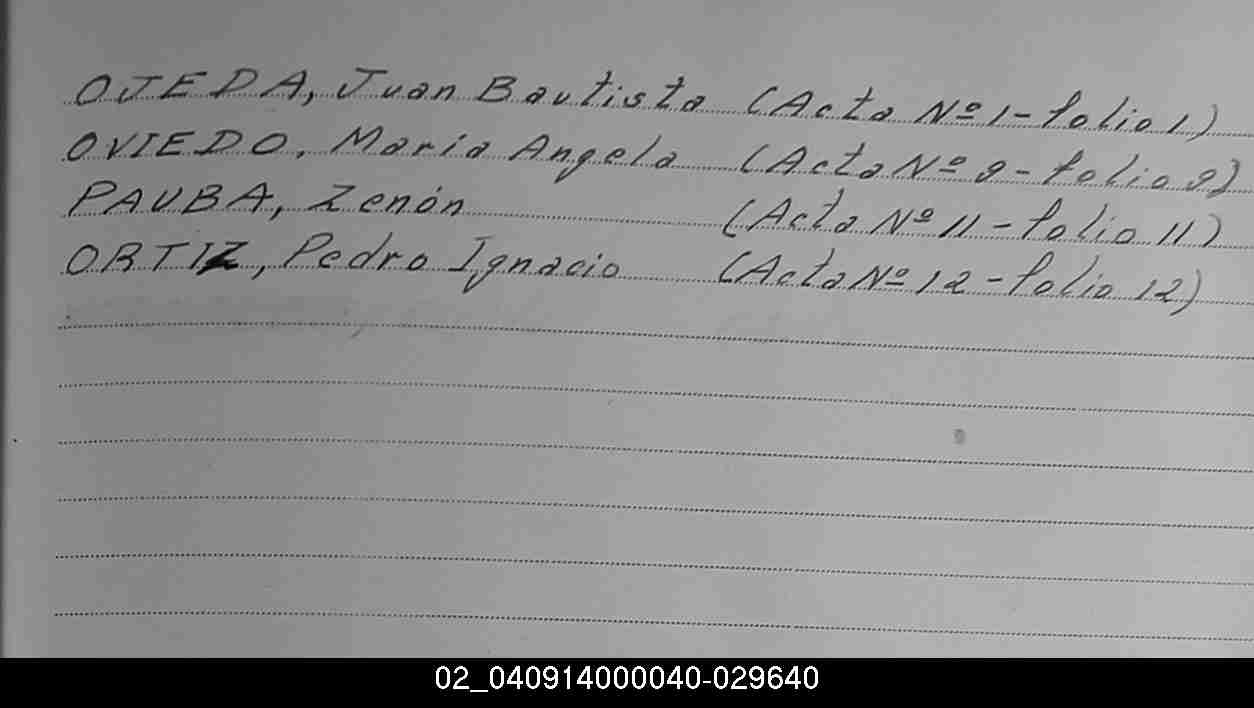 OJEDA, Juan Bautista (Acta Nº 1 - folio 1)
OVIEDO, María Angela (Acta Nº 9 - folio 9)
PAUBA, Zenón (Acta Nº 11 - folio 11)
ORTIZ, Pedro Ignacio (Acta Nº 12 - folio 12)
02_040914000040-029640